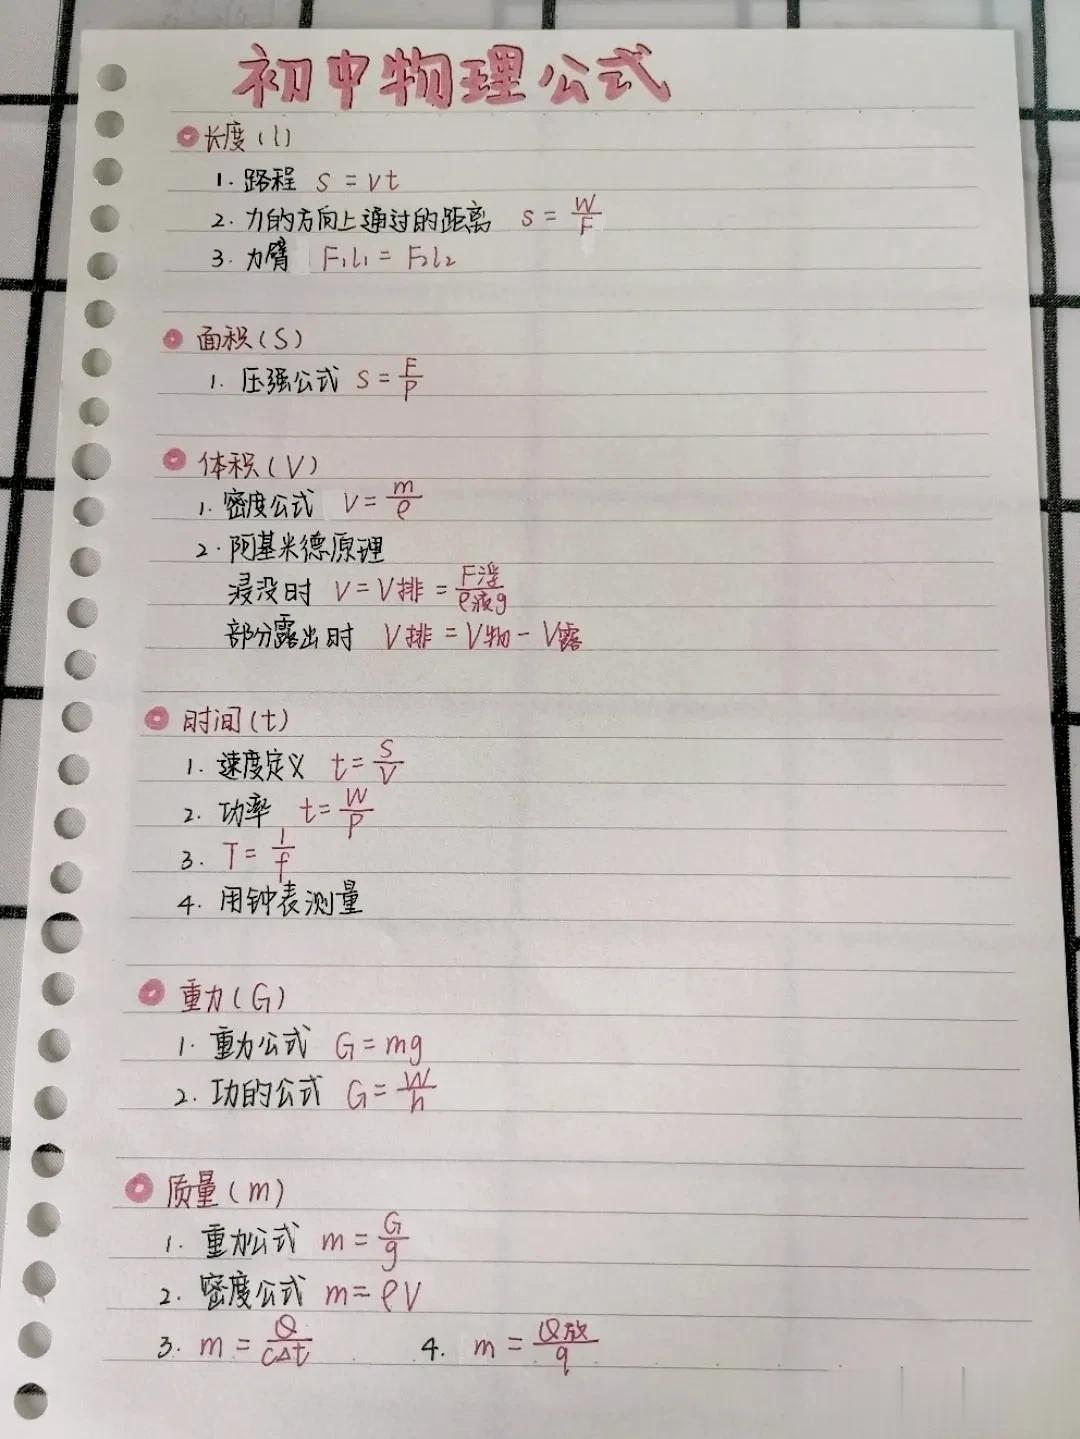 初中物理公式
长度(l)
1. 路程 s = vt
2. 力的方向上通过的距离 s = W/F
3. 力臂 F₁l₁ = F₂l₂
面积(S)
1. 压强公式 S = F/P
体积(V)
1. 密度公式 V = m/ρ
2. 阿基米德原理
浸没时 V = V排 = F浮/ρ液g
部分露出时 V排 = V物 - V露
时间(t)
1. 速度定义 t = S/V
2. 功率 t = W/P
3. T = 1/f
4. 用钟表测量
重力(G)
1. 重力公式 G = mg
2. 功的公式 G = W/h
质量(m)
1. 重力公式 m = G/g
2. 密度公式 m = ρV
3. m = Q/cΔt 4. m = Q放/q